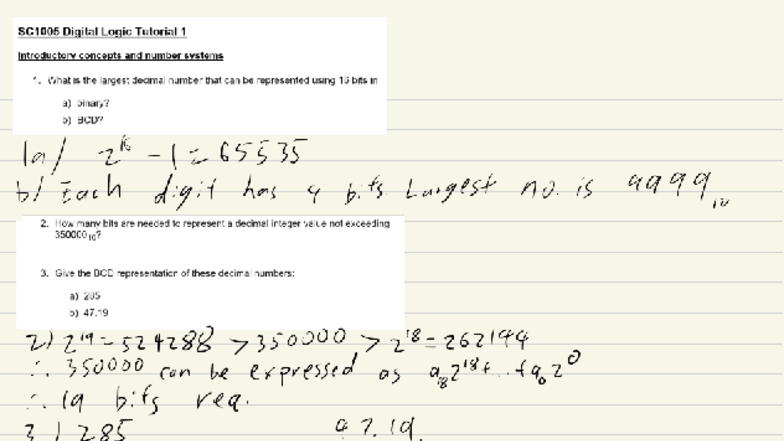 SC1005 Digital Logic Tutorial 1
Introductory concepts and number systems
1. What is the largest decimal number that can be represented using 16 bits in
a) binary?
b) BCD?
1a/ 2^16 - 1 = 65535
b/ Each digit has 4 bits. Largest no. is 9999₁₀
2. How many bits are needed to represent a decimal integer value not exceeding
350000₁₀?
3. Give the BCD representation of these decimal numbers:
a) 285
b) 47.19
2) 2^19 = 524288 > 350000 > 2^18 = 262144
∴ 350000 can be expressed as a₁₈2^18 + ... + a₀2^0
∴ 19 bits req.
3) 285 47.19